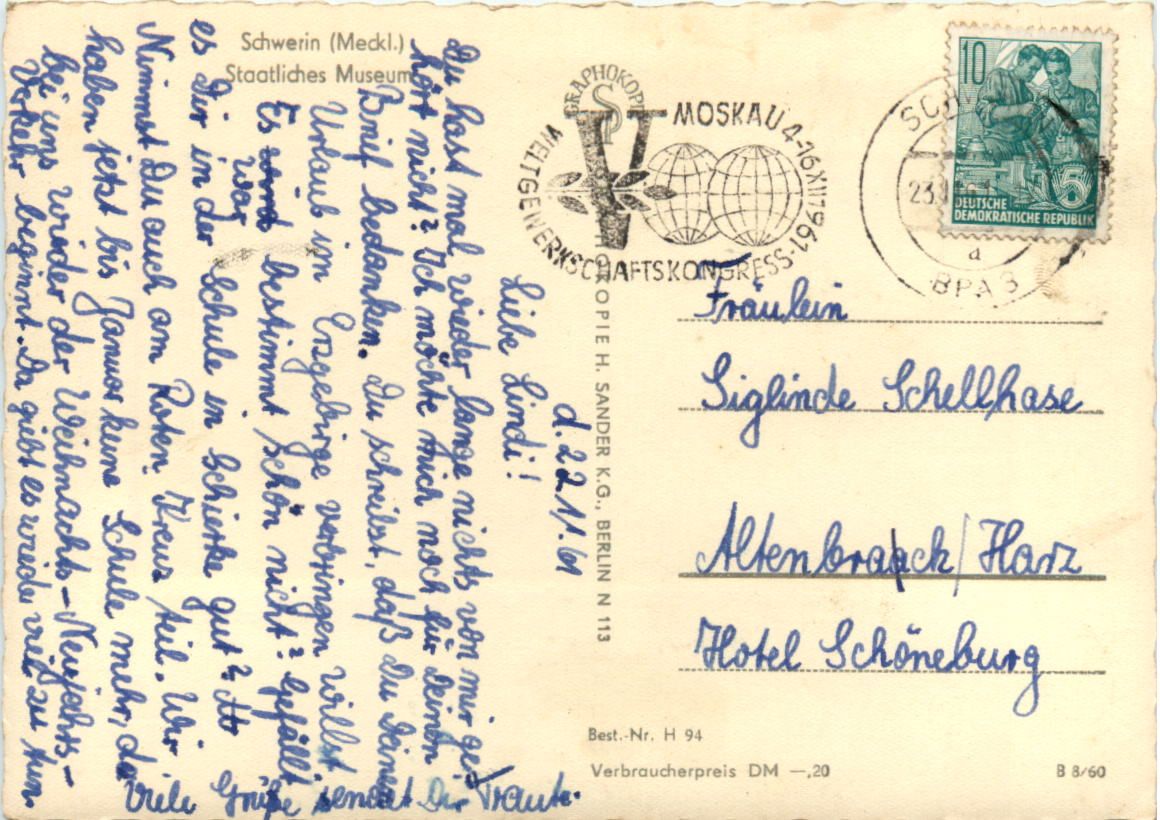 Schwerin (Meckl.)
Staatliches Museum
d. 22.11.61
Liebe Lindi!
Du hast mal wieder lange nichts von mir ge-
hört nicht? Ich möchte mich noch für Deinen
Brief bedanken. Du schreibst, daß Du Deinen
Urlaub im Erzgebirge verbringen willst.
Es war bestimmt schön nicht? Gefällt
es Dir in der Schule in Schierke gut?
Nimmst Du auch am Roten Kreuz teil. Wir
haben jetzt bis Januar keine Schule mehr, da
bei uns wieder der Weihnachts-Neujahrs-
Verkehr beginnt. Da gibt es wieder viel zu tun.
Viele Grüße sendet Dir Traute.
GRAPHOKOPIE H. SANDER K.G., BERLIN N 113
WELTGEWERKSCHAFTSKONGRESS
MOSKAU 4-16 XII 1961
BPA 3
a
10
5
DEUTSCHE
DEMOKRATISCHE REPUBLIK
Fräulein
Siglinde Schellhase
Altenbrack/Harz
Hotel Schöneburg
Best.-Nr. H 94
Verbraucherpreis DM —,20
B 8/60